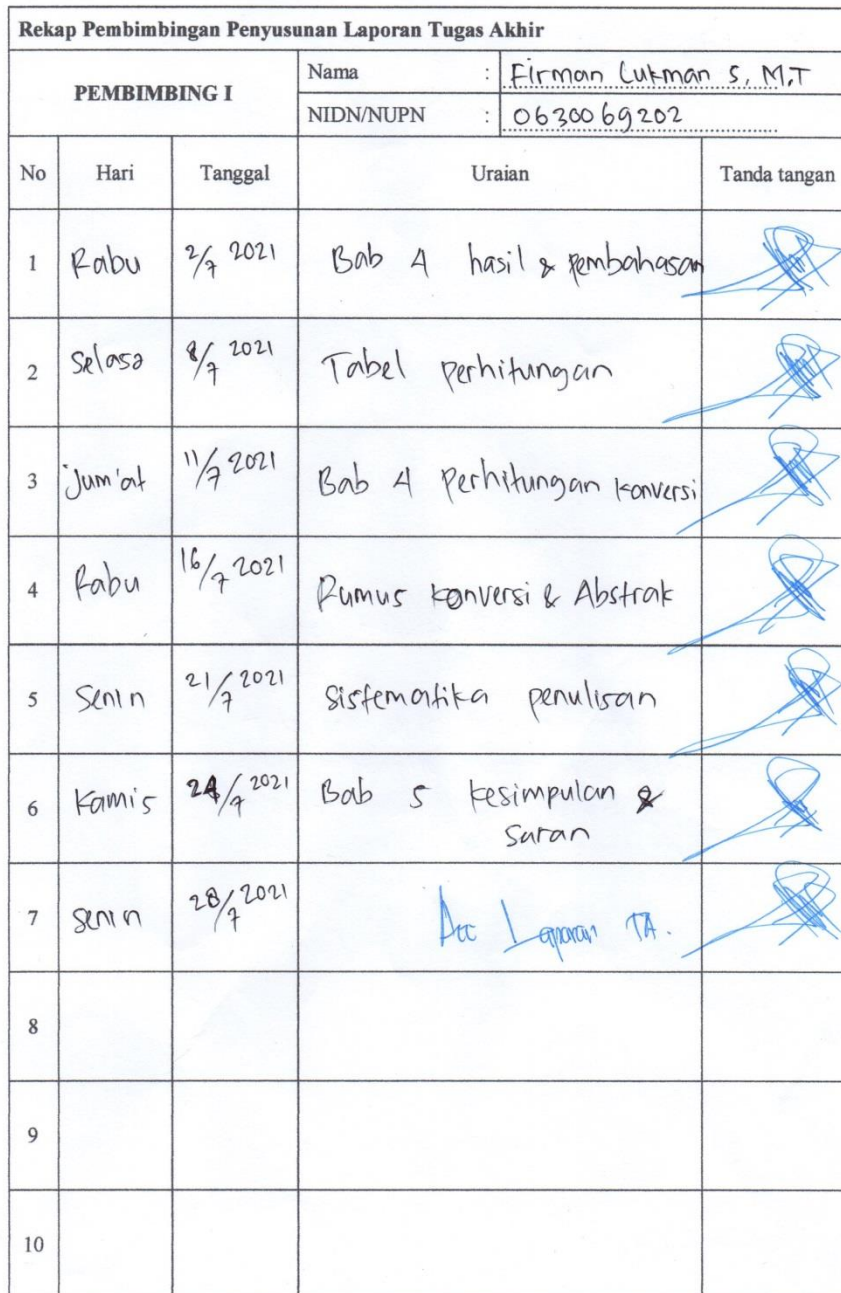 Rekap Pembimbingan Penyusunan Laporan Tugas Akhir
PEMBIMBING I
Nama : Firman Lukman S, M.T
NIDN/NUPN : 0630069202
No Hari Tanggal Uraian Tanda tangan
1 Rabu 2/7 2021 Bab 4 hasil & pembahasan
2 Selasa 8/7 2021 Tabel perhitungan
3 Jum'at 11/7 2021 Bab 4 perhitungan konversi
4 Rabu 16/7 2021 Rumus konversi & Abstrak
5 Senin 21/7 2021 Sistematika penulisan
6 Kamis 24/7 2021 Bab 5 kesimpulan &
saran
7 Senin 28/7 2021 Acc Laporan TA.
8
9
10